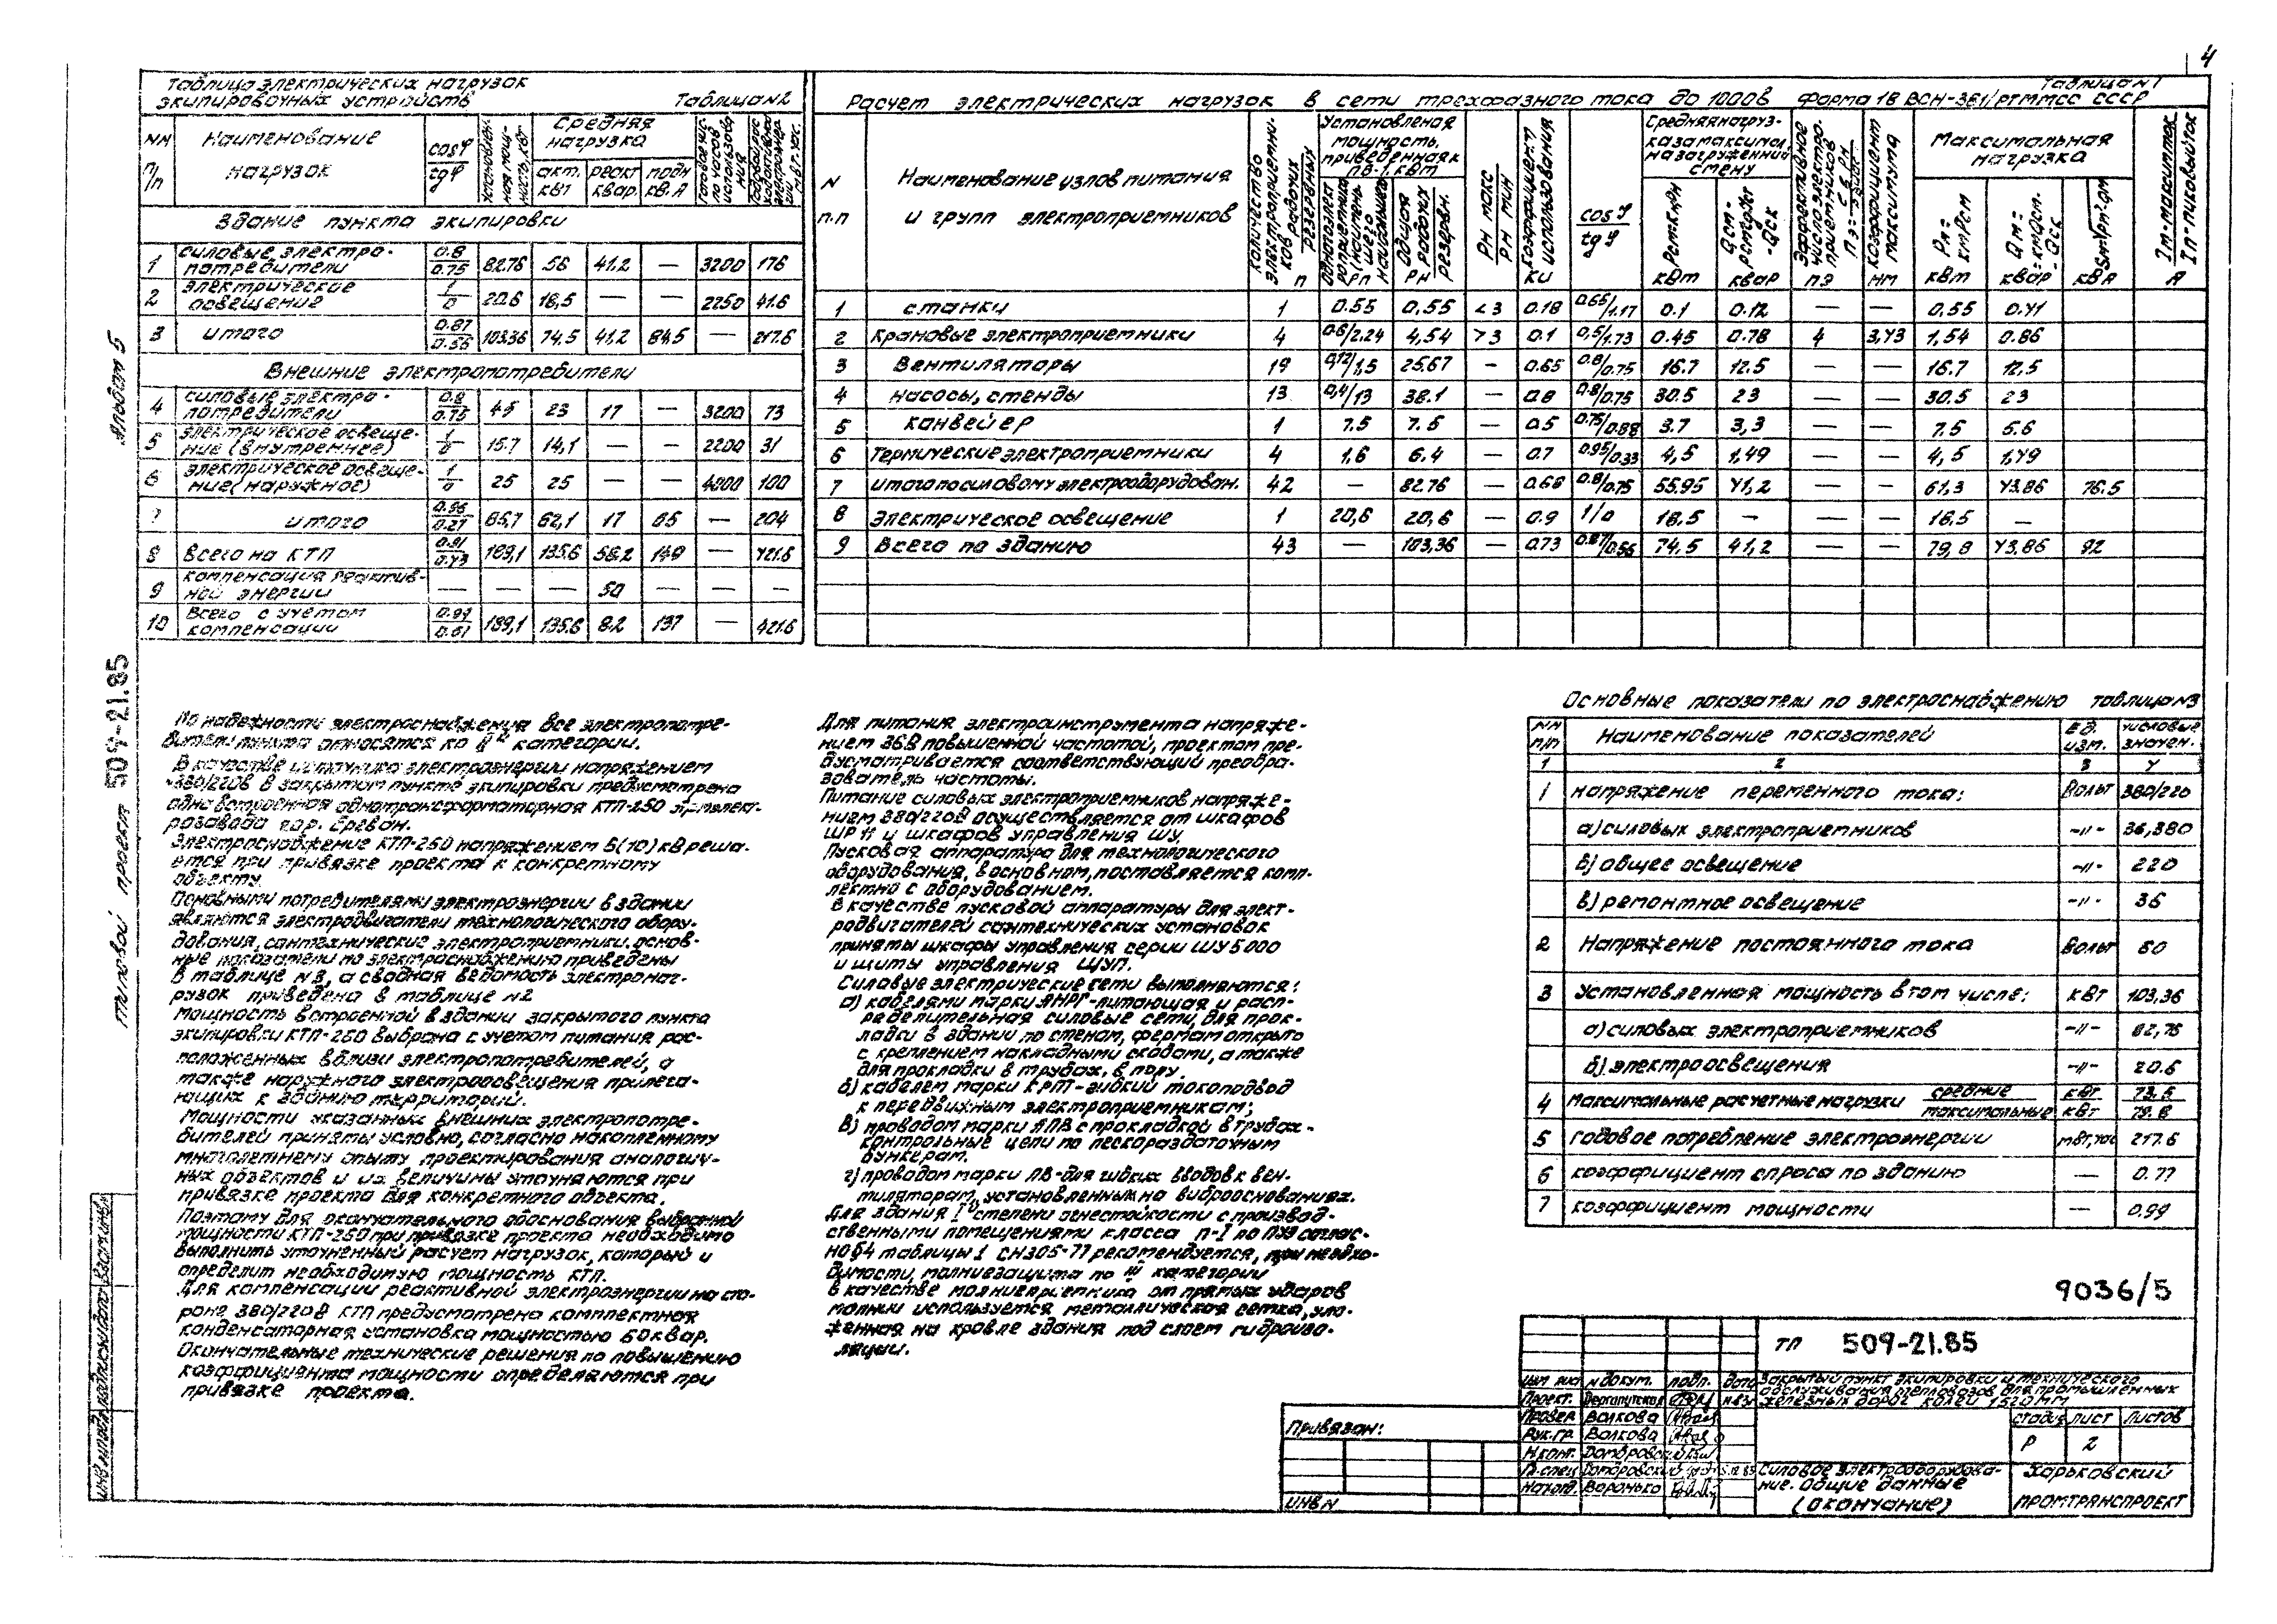 4
Таблица электрических нагрузок
экипировочных устройств Таблица N2
NN п/п Наименование нагрузок cosφ/tgφ Установленная мощность, кВт Средняя нагрузка акт. кВт реакт квар. полн кв.А
Здание пункта экипировки
1 силовые электропотребители 0.8/0.75 82.76 56 41.2 — 3200 176
2 электрические освещение 1/0 20.6 18,5 — — 2250 41.6
3 итого 0.87/0.56 103.36 74,5 41,2 84.5 — 217.6
Внешние электропотребители
4 силовые электро-потребители 0.8/0.75 45 23 17 — 3200 73
5 электрическое освеще-ние (внутреннее) 1/0 15.7 14,1 — — 2200 31
6 электрическое освеще-ние (наружное) 1/0 25 25 — — 4000 100
7 итого 0.96/0.27 85,7 62,1 17 65 — 204
8 Всего на КТП 0.91/0.43 189,1 136.6 58.2 149 — 421.6
9 компенсация реактив-ной энергии — — — 50 — — —
10 Всего с учетом компенсации 0.99/0.61 189,1 136.6 8.2 137 — 421.6
Таблица N1
Расчет электрических нагрузок в сети трехфазного тока до 1000в форма 18 ВСН-361/ртммсс СССР
N п.п Наименование узлов питания и групп электроприемников Количество электроприемников рабочих/резервных n Установленая мощность, приведенная к ПВ-1, кВт Общая рабочих/резервн. Рн Рн макс/Рн мин Коэффициент использования Ки cosφ/tgφ Средняя нагрузка за максимально загруженную смену кВт квар Эффективное число электроприемников пэ Коэффициент максимума Максимальная нагрузка кВт квар кВА Iм-максим.ток/Iп-пиковый ток А
1 станки 1 0.55 0,55 <3 0.18 0.65/1.17 0.1 0.12 — — 0,55 0.41
2 Крановые электроприемники 4 0.6/2.24 4,54 >3 0.1 0,5/1.73 0.45 0.78 4 3,43 1,54 0.86
3 Вентиляторы 19 0,12/1,5 25.67 — 0.65 0.8/0.75 16.7 12.5 — — 16.7 12,5
4 насосы, стенды 13 0,4/13 38.1 — 0.8 0.8/0.75 30.5 23 — — 30.5 23
5 конвейер 1 7.5 7.5 — 0.5 0.75/0.88 3.7 3,3 — — 7.5 5.6
6 термические электроприемники 4 1,6 6.4 — 0.7 0.95/0.33 4,5 1,49 — — 4,5 1,49
7 итого по силовому электрооборудован. 42 — 82.76 — 0.68 0.8/0.75 55.95 41,2 — — 61,3 43.86 76.5
8 Электрическое освещение 1 20,6 20,6 — 0.9 1/0 18.5 — — — 18.5 —
9 Всего по зданию 43 — 103,36 — 0.73 0.87/0.56 74,5 41,2 — — 79,8 43,86 92
Альбом 5
типовой проект 509-21.85
По надежности электроснабжения все электропотре-
бители пункта относятся ко IIой категории.
В качестве источника электроэнергии напряжением
~380/220в в закрытом пункте экипировки предусмотрена
одна встроенная однотрансформаторная КТП-250 Армэлект-
розавода гор. Ереван.
Электроснабжение КТП-250 напряжением 6(10) кВ реша-
ется при привязке проекта к конкретному
объекту.
Основными потребителями электроэнергии в здании
являются электродвигатели технологического обору-
дования, сантехнические электроприемники. Основ-
ные показатели по электроснабжению приведены
в таблице N3, а сводная ведомость электронаг-
рузок приведена в таблице N2
Мощность встроенной в здании закрытого пункта
экипировки КТП-250 выбрана с учетом питания рас-
положенных вблизи электропотребителей, а
также наружного электроосвещения прилега-
ющих к зданию территорий.
Мощности указанных внешних электропотре-
бителей приняты условно, согласно накопленному
многолетнему опыту проектирования аналогич-
ных объектов и их величины уточняются при
привязке проекта для конкретного объекта.
Поэтому для окончательного обоснования выбранной
мощности КТП-250 при привязке проекта необходимо
выполнить уточненный расчет нагрузок, который и
определит необходимую мощность КТП.
Для компенсации реактивной электроэнергии на сто-
роне 380/220в КТП предусмотрена комплектная
конденсаторная установка мощностью 50 квар.
Окончательные технические решения по повышению
коэффициента мощности определяются при
привязке проекта.
Для питания электроинструмента напряже-
нием 36В повышенной частотой, проектом пре-
дусматривается соответствующий преобра-
зователь частоты.
Питание силовых электроприемников напряже-
нием 380/220в осуществляется от шкафов
ШР11 и шкафов управления ШУ.
Пусковая аппаратура для технологического
оборудования, в основном, поставляется комп-
лектно с оборудованием.
В качестве пусковой аппаратуры для элект-
родвигателей сантехнических установок
приняты шкафы управления серии ШУ5000
и щиты управления ЩУП.
Силовые электрические сети выполняются:
а) кабелями марки АНРГ-питающая и расп-
ределительная силовые сети, для прок-
ладки в здании по стенам, фермам открыто
с креплением накладными скобами, а также
для прокладки в трубах, в полу.
б) кабелем марки КРПТ-гибкий токоподвод
к передвижным электроприемникам;
в) проводом марки АПВ с прокладкой в трубах -
контрольные цепи по пескораздаточным
бункерам.
г) проводом марки ПВ-для гибких вводов к вен-
тиляторам, установленным на виброоснованиях.
Для здания Iой степени огнестойкости с производ-
ственными помещениями класса П-I по ПУЭ соглас-
но §4 таблицы 1 СН305-77 рекомендуется, при необхо-
димости, молниезащита по III категории
В качестве молниеприемника от прямых ударов
молнии используется металлическая сетка, уло-
женная на кровле здания под слоем гидроизо-
ляции.
Основные показатели по электроснабжению таблица N3
NN п/п Наименование показателей Ед. изм. числовые значен.
1 2 3 4
1 напряжение переменного тока: Вольт 380/220
а) силовых электроприемников -"- 36,380
б) общее освещение -"- 220
в) ремонтное освещение -"- 36
2 Напряжение постоянного тока Вольт 50
3 Установленная мощность в том числе: кВт 103,36
а) силовых электроприемников -"- 82,76
б) электроосвещения -"- 20.6
4 Максимальные расчетные нагрузки средние кВт 73.5
максимальные кВт 79.8
5 Годовое потребление электроэнергии мВт,час 217.6
6 коэффициент спроса по зданию — 0.77
7 коэффициент мощности — 0.99
9036/5
ТП 509-21.85
изм лист N докум. подп. дата
Закрытый пункт экипировки и технического
обслуживания тепловозов для промышленных
железных дорог колеи 1520 мм
Провер. Волкова
Рук.гр. Волкова
Н.конт. Домбровский
Гл.спец Домбровский
Нач.отд. Воронько
стадия лист листов
Р 2
Силовое электрооборудова-
ние. Общие данные
(окончание)
Харьковский
ПРОМТРАНСПРОЕКТ
Привязан:
ИНВ N
ИНВ.N подл. подпись и дата Взам.инв.N